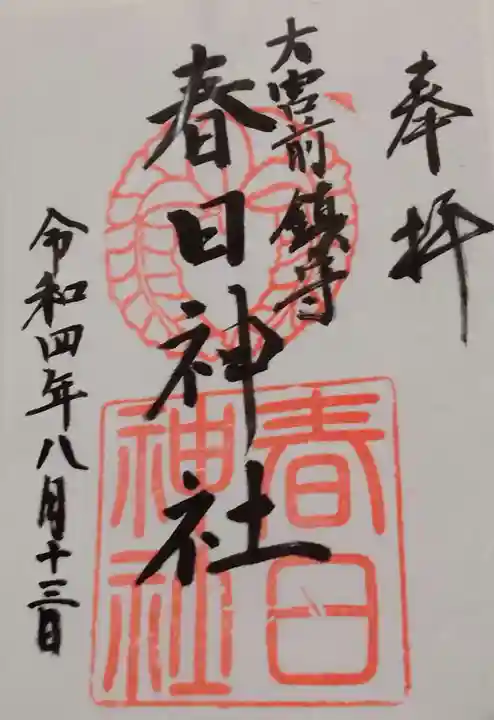 奉拝
大宮前鎮守
春日神社
令和四年八月十三日
春日
神社